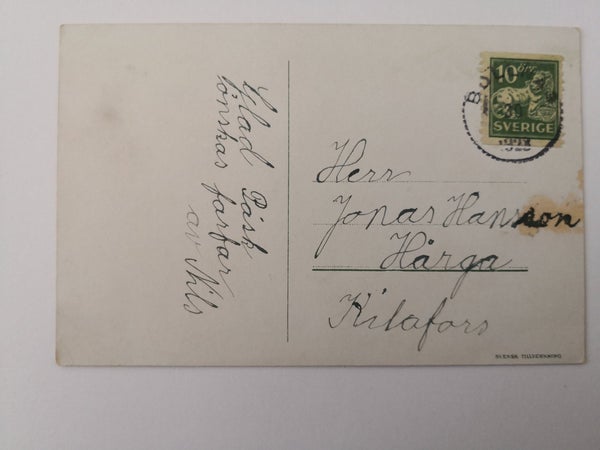 Glad Påsk
önskas farfar
av Nils
10 öre
SVERIGE
Herr
Jonas Hansson
Hårga
Kilafors
SVENSK TILLVERKNING